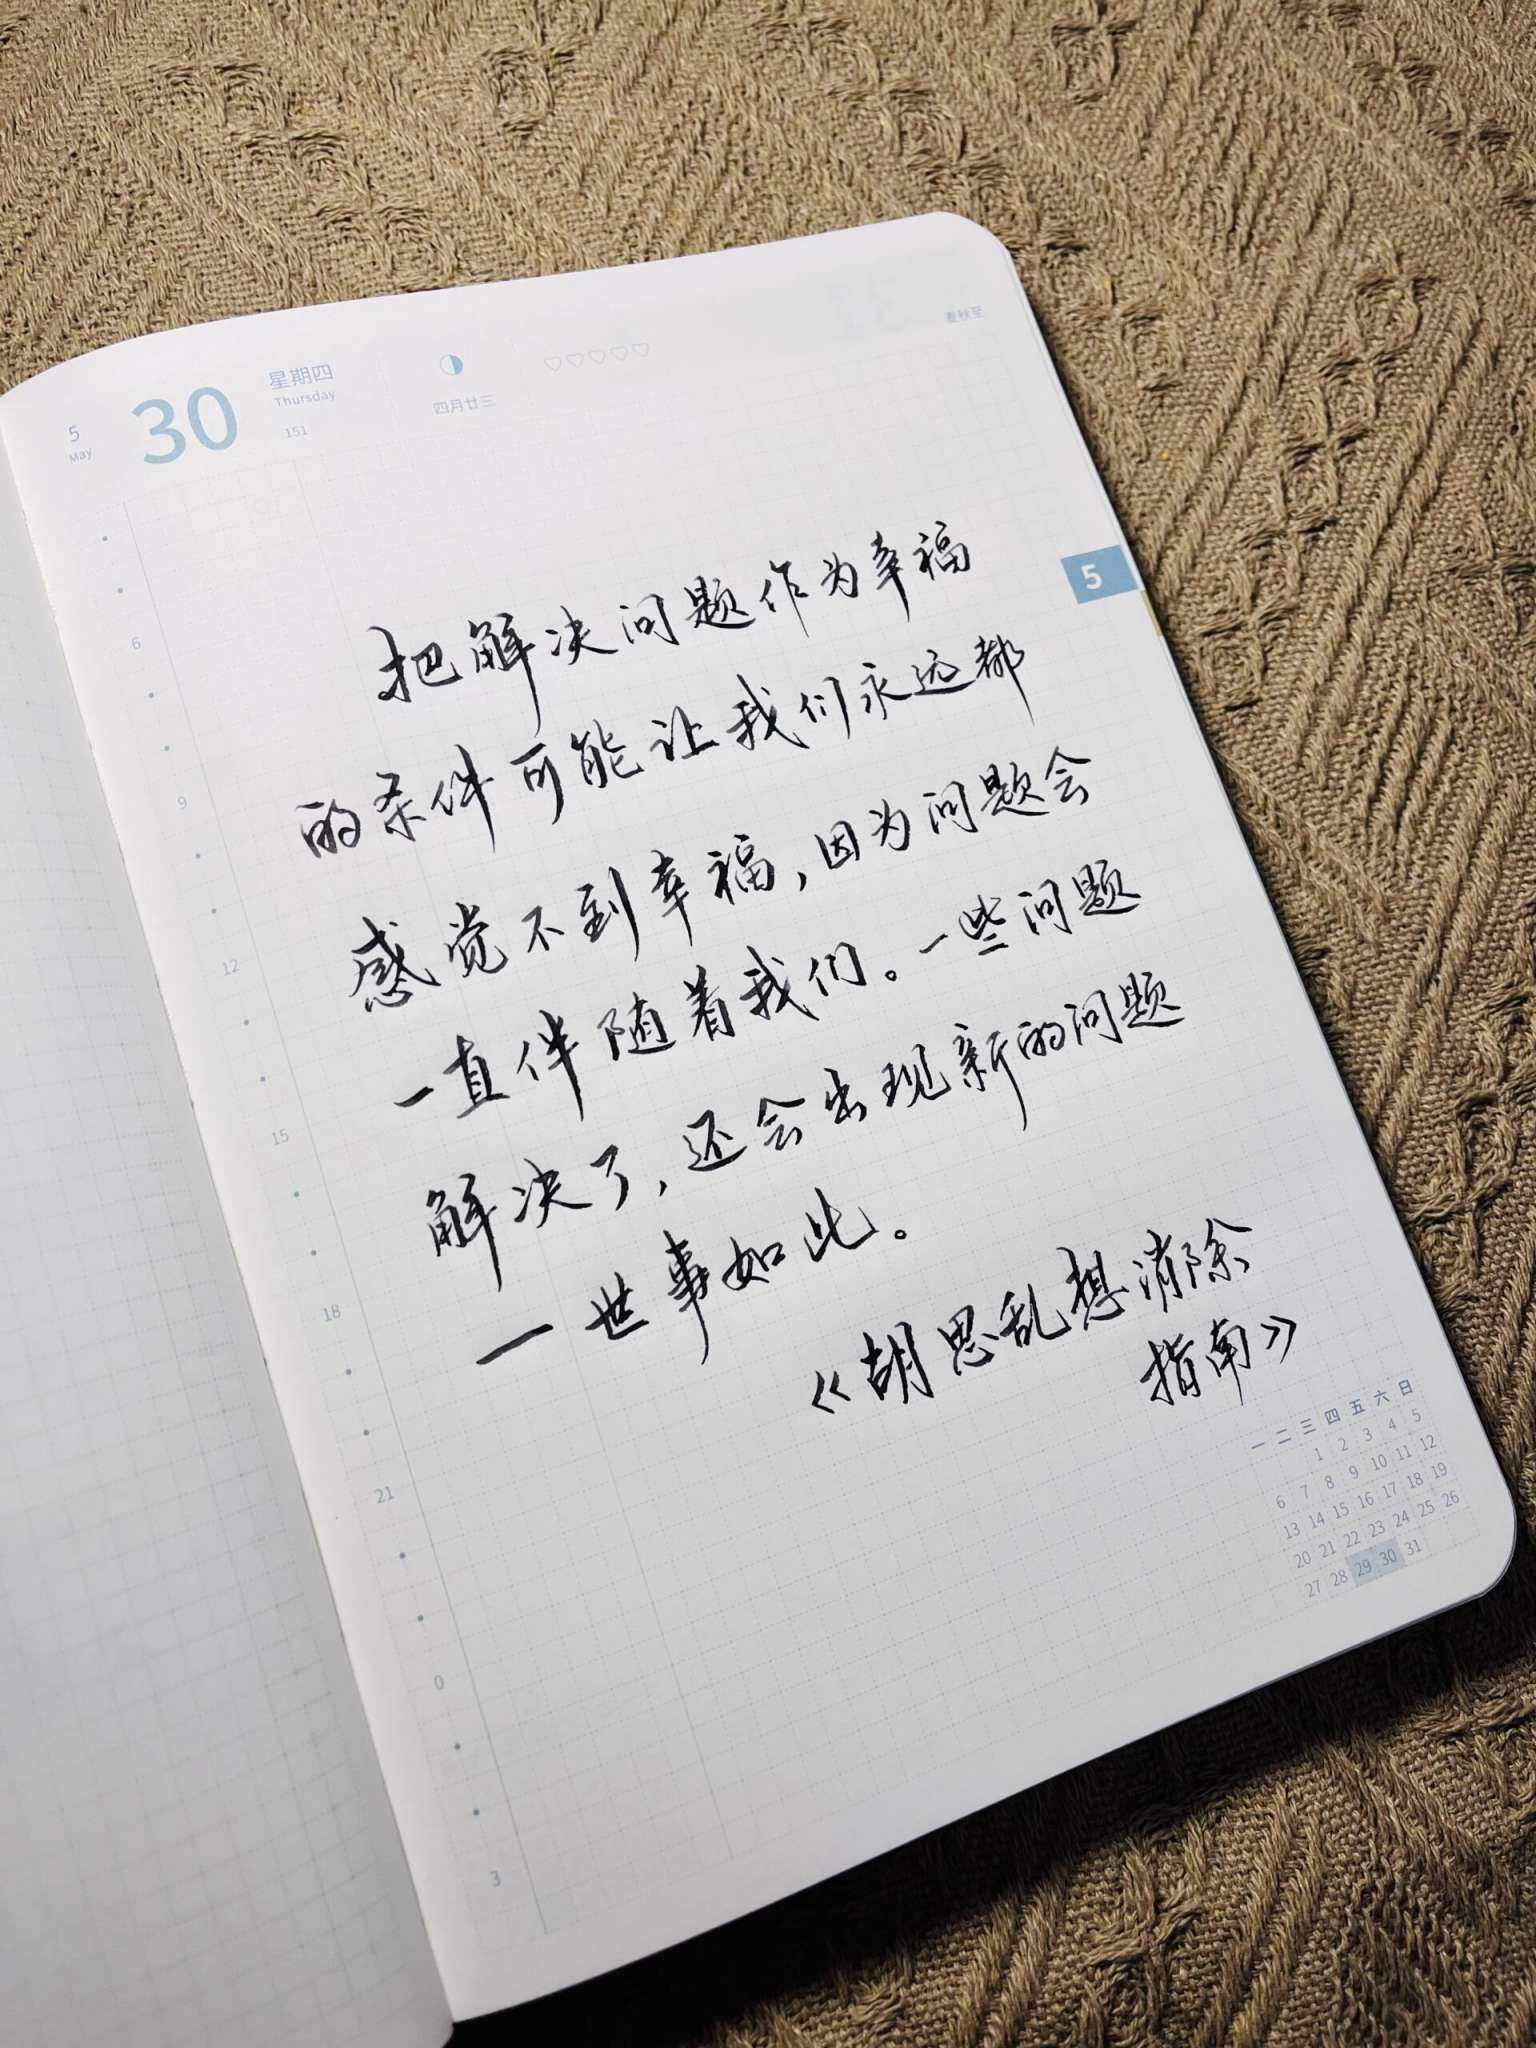 5
May
30
星期四
Thursday
151
四月廿三
夏秋至
5
把解决问题作为幸福
的条件可能让我们永远都
感觉不到幸福，因为问题会
一直伴随着我们。一些问题
解决了，还会出现新的问题
一世事如此。
《胡思乱想消除
指南》
6
9
12
15
18
21
0
3
一 二 三 四 五 六 日
1 2 3 4 5
6 7 8 9 10 11 12
13 14 15 16 17 18 19
20 21 22 23 24 25 26
27 28 29 30 31